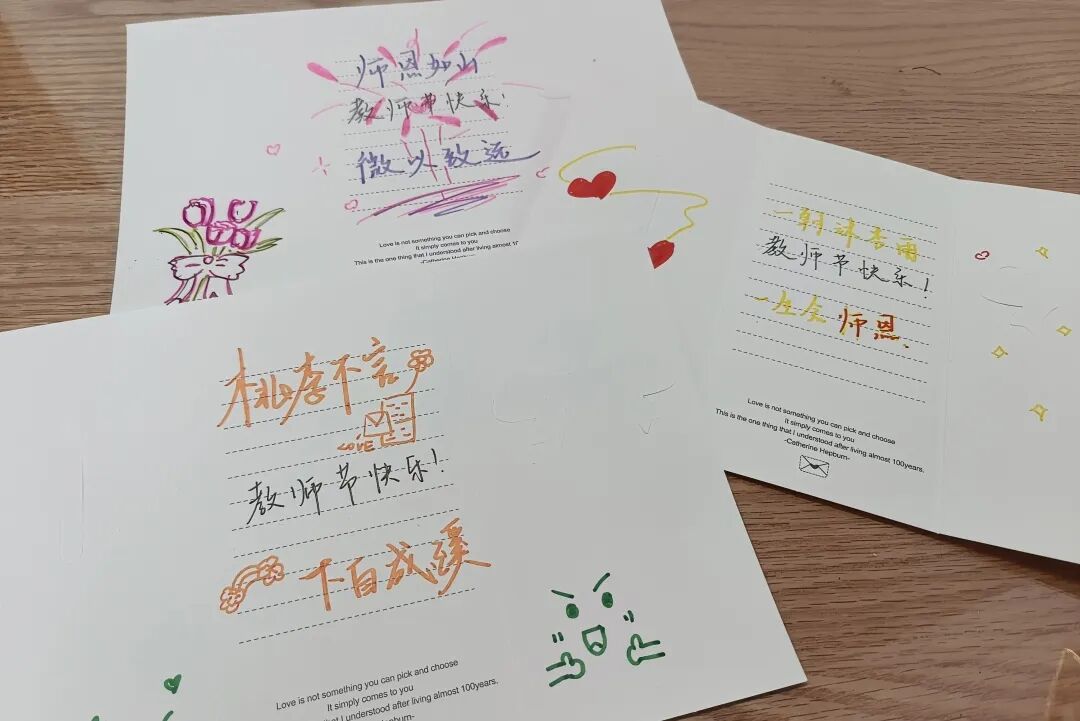 师恩如山
教师节快乐!
微以致远
Love is not something you can pick and choose
It simply comes to you
This is the one thing that I understood after living almost
-Catherine Hepburn-
一朝沐杏雨
教师节快乐!
一生念师恩.
Love is not something you can pick and choose
It simply comes to you
This is the one thing that I understood after living almost 100years.
-Catherine Hepburn-
桃李不言
LOVE
教师节快乐!
下自成蹊
Love is not something you can pick and choose
It simply comes to you
that I understood after living almost 100years.
-Catherine Hepburn-